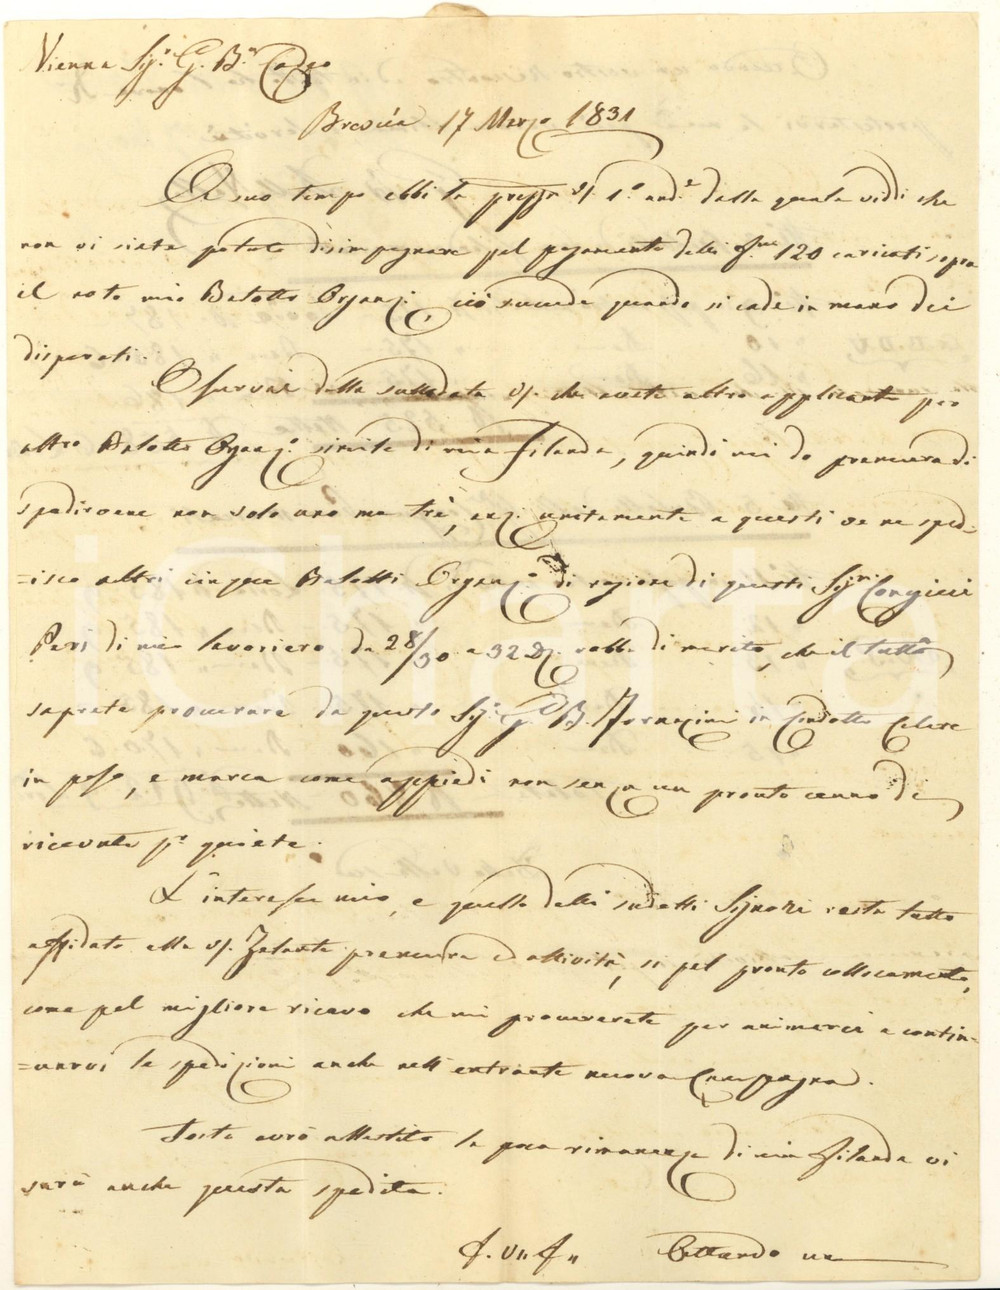 Vienna Sig.r G. B.
Brescia 17 Marzo 1831
A suo tempo ebbi la preg.a V. 1.o and.e dalla quale viddi che
non vi siete potuto disimpegnare pel pagamento delli 120 caricati sopra
il noto mio Balotto Organz.o ciò succede quando si cade in mano dei
disperati.
Osservai dalla sullodata V. che avete altro applicante per
altro Balotto Organz.o simile di mia Filanda, quindi mi do premura di
spedirvene non solo uno ma trè, anz. unitamente a questi ve ne sped-
=isco altri cinque Balotti Organz.o di ragione di questi Sig.ri
Pari di mio lavoriero da 28/30 a 32 D. robba di merito, che il tutto
saprete procurare da questo Sig.r G. B. Fornasini in Condotta Celere
in peso, e marca come appiedi non senza un pronto cenno di
ricevuta p. quiete.
L'interesse mio, e quello delli sudetti Signori resta tutto
affidato alla V. Zelante premura ed attività, si pel pronto collocamento,
come pel migliore ricavo che mi procurerete per animarci a contin-
=uarvi le spedizioni anche nell'entrante nuova Campagna.
Tosto avrò allestito la poca rimanenza di mia Filanda vi
sarà anche questa spedita.